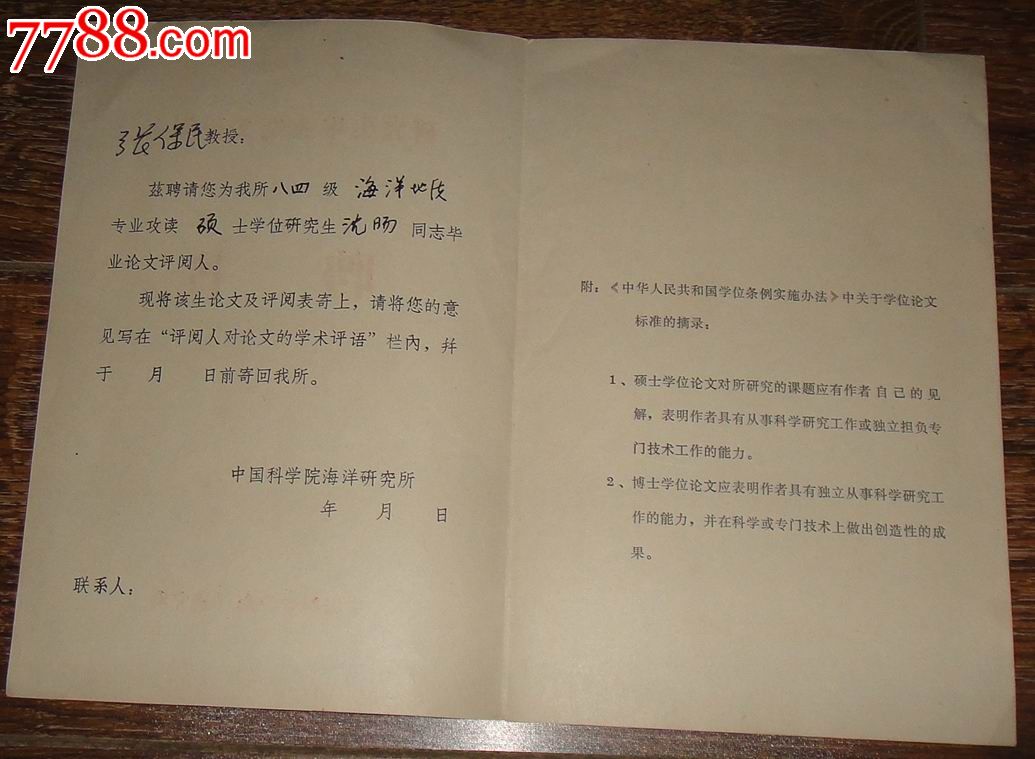 7788.com
张保民教授：
兹聘请您为我所八四 级 海洋地质
专业攻读 硕 士学位研究生沈肠 同志毕
业论文评阅人。
现将该生论文及评阅表寄上，请将您的意
见写在“评阅人对论文的学术评语”栏内，并
于 月 日前寄回我所。
中国科学院海洋研究所
年 月 日
联系人：
附：《中华人民共和国学位条例实施办法》中关于学位论文
标准的摘录：
1、硕士学位论文对所研究的课题应有作者自己的见
解，表明作者具有从事科学研究工作或独立担负专
门技术工作的能力。
2、博士学位论文应表明作者具有独立从事科学研究工
作的能力，并在科学或专门技术上做出创造性的成
果。